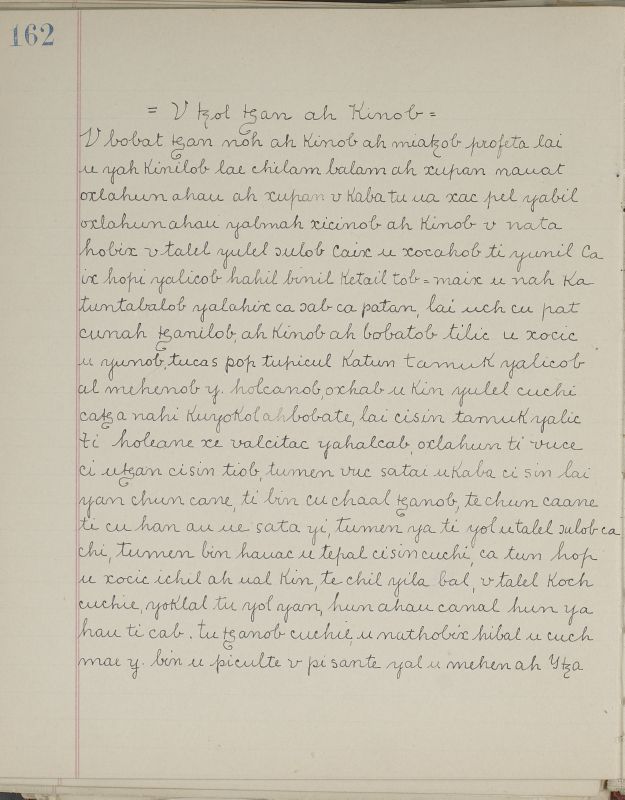 162
= V tzol tħan ah Kinob =
V bobat tħan noh ah Kinob ah miatzob profeta lai
u yah Kinilob lae chilam balam ah xupan nauat
oxlahun ahau ah xupan v Kaba tu ua xac pel yabil
oxlahun ahau yalmah xicinob ah Kinob v nata
hobix v talel yulel ɔulob Caix u xocahob ti yunil Ca
ix hopi yalicob hahil binil Ketail tob = maix u nah Ka
tuntabalob yalahix ca ɔab ca patan, lai uch cu pat
cunah tħanilob, ah Kinob ah bobatob tilic u xocic
u yunob, tucas pop tupicul Katun tamuK yalicob
al mehenob y. holcanob, oxhab u Kin yulel cuchi
catħa nahi KuyoKol ah bobate, lai cisin tamuK yalic
ti holeane xe valcitac yahalcab, oxlahun ti vuce
ci utħan cisin tiob, tumen vuc satai u Kaba ci sin lai
yan chun cane, ti bin cu chaal tħanob, te chun caane
te cu han au ue sata yi, tumen ya ti yol u talel ɔulob ca
chi, tumen bin hauac u tepal cisin cuchi, ca tun hop
u xocic ichil ah ual Kin, te chil yila bal, v talel Koch
cuchie, yoKlal tu yol yan, hun ahau canal hun ya
hau ti cab. tu tħanob cuchie, u nathobix hibal u cuch
mae y. bin u piculte v pi sante yal u mehen ah Ytza